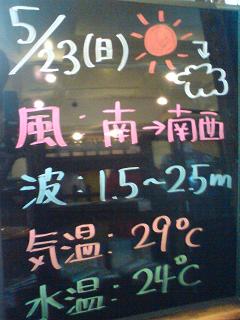 5/23(日)
風:南→南西
波:1.5~2.5m
気温:29℃
水温:24℃